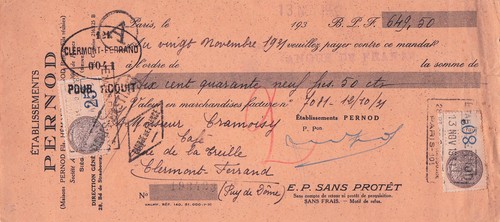 Paris, le 193 B.P.F. 649,50
Au vingt Novembre 1931 veuillez payer contre ce mandat
à l'ordre de la somme de
Six cent quarante neuf frs. 50 cts
Valeur en marchandises facture n° 7081 - 12/10/31
Établissements PERNOD
P. Pon
Monsieur Tramoisy
Café
de la Treille
Clermont-Ferrand
(Puy de Dôme)
N°
E.P. SANS PROTÊT
Sans compte de retour ni profit de perpétuation.
SANS FRAIS. - Motif de refus.
ÉTABLISSEMENTS
PERNOD
CLERMONT-FERRAND
POUR ACQUIT
A
13 NOV 193